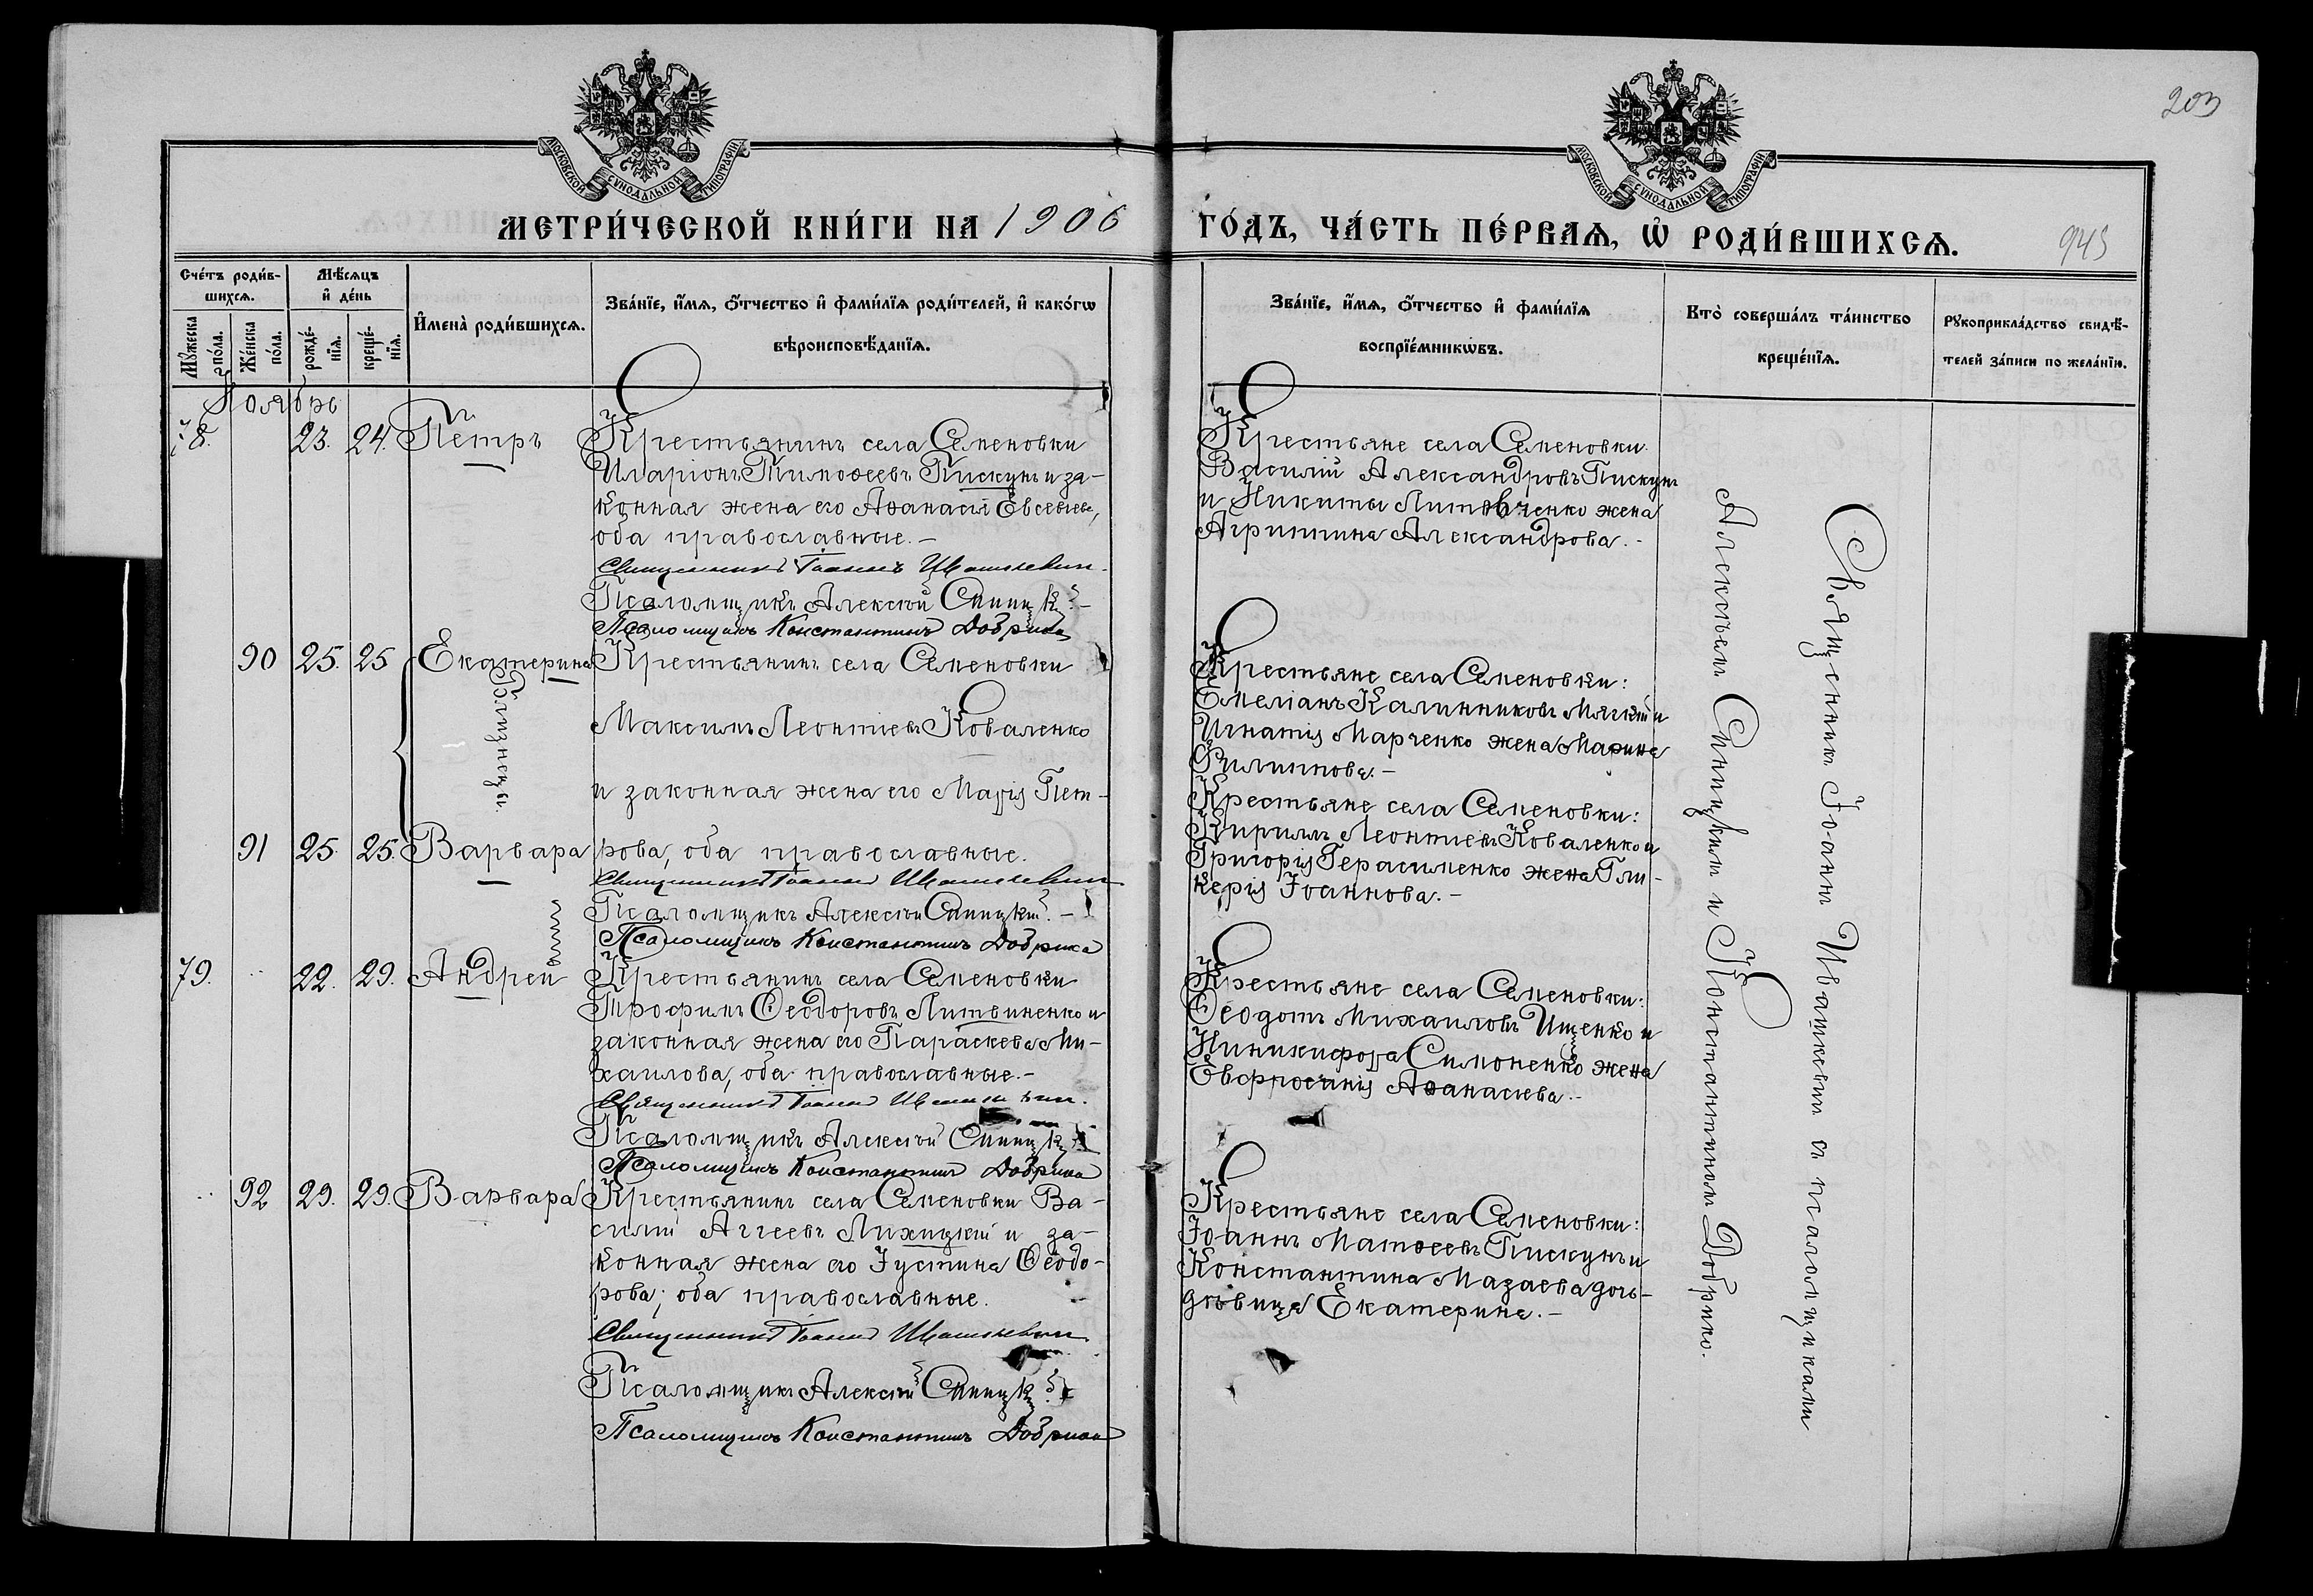 203
МОСКОВСКОЙ СѴНОДАЛЬНОЙ ТИПОГРАФІИ
МОСКОВСКОЙ СѴНОДАЛЬНОЙ ТИПОГРАФІИ
МЕТРИ́ЧЕСКОЙ КНИ́ГИ НА 1906 ГО́ДЪ, ЧА́СТЬ ПЕ́РВАѦ, Ѽ РОДИ́ВШИХСѦ.
945
Сче́тъ роди́в-
шихсѧ.
Мѣ́сѧцъ
и҆ де́нь
Мꙋ́жеска
по́ла.
Же́нска
по́ла.
рожде́-
нїѧ.
креще́-
нїѧ.
И҆мена̀ роди́вшихсѧ.
Зва́нїе, и҆́мѧ, ѻ҆́тчество и҆ фами́лїѧ роди́телей, и҆ како́гѡ
вѣроисповѣ́данїѧ.
Зва́нїе, и҆́мѧ, ѻ҆́тчество и҆ фами́лїѧ
воспрїе́мникѡвъ.
Кто̀ соверша́лъ та́инство
креще́нїѧ.
Рꙋкоприкла́дство свидѣ́-
телей за́писи по жела́нїю.
Ноябрь
78. 23. 24. Петръ
Крестьянинъ села Семеновки
Иларіонъ Тимоѳеевъ Пискунъ и за-
конная жена его Аѳанасія Евсеньева,
оба православные.-
Священникъ Іоаннъ Ивашкевич.
Псаломщикъ Алексій Синицкій.-
Псаломщикъ Константинъ Добрика
Крестьяне села Семеновки
Василій Александровъ Пискунъ
и Никиты Литовченко жена
Агриппина Александрова.-
90 25. 25 Екатерина
Близнецы.
Крестьянинъ села Семеновки
Максимъ Леонтіевъ Коваленко
и законная жена его Марія Пет-
91 25. 25. Варвара
рова, оба православные.
Священникъ Іоаннъ Ивашкевич
Псаломщикъ Алексій Синицкій.-
Псаломщикъ Константинъ Добрика
Крестьяне села Семеновки:
Емеліанъ Калинниковъ Мягкій и
Игнатія Марченко жена Марина
Филиппова.-
Крестьяне села Семеновки:
Кириллъ Леонтіевъ Коваленко и
Григорія Герасименко жена Гли-
керія Іоаннова.-
79. 22. 29. Андрей
Крестьянинъ села Семеновки
Трофимъ Ѳеодоровъ Литвиненко и
законная жена его Параскева Ми-
хаилова, оба православные.-
Священникъ Іоаннъ Ивашкевич.
Псаломщикъ Алексій Синицкій
Псаломщикъ Константинъ Добрика
Крестьяне села Семеновки:
Ѳеодотъ Михаиловъ Ищенко и
Ниникифора Симоненко жена
Евфросинія Аѳанасіева.-
92 29. 29. Варвара
Крестьянинъ села Семеновки Ва-
силій Аггеевъ Лихицкій и за-
конная жена его Іустина Ѳеодо-
рова; оба православные.
Священникъ Іоаннъ Ивашкевич
Псаломщикъ Алексій Синицкій
Псаломщикъ Константинъ Добрика
Крестьяне села Семеновки:
Іоаннъ Матѳеевъ Пискунъ и
Константина Мазаева дочь-
дѣвица Екатерина.-
Священникъ Іоаннъ Ивашкевич съ псаломщиками
Алексѣемъ Синицкимъ и Константиномъ Добрико.